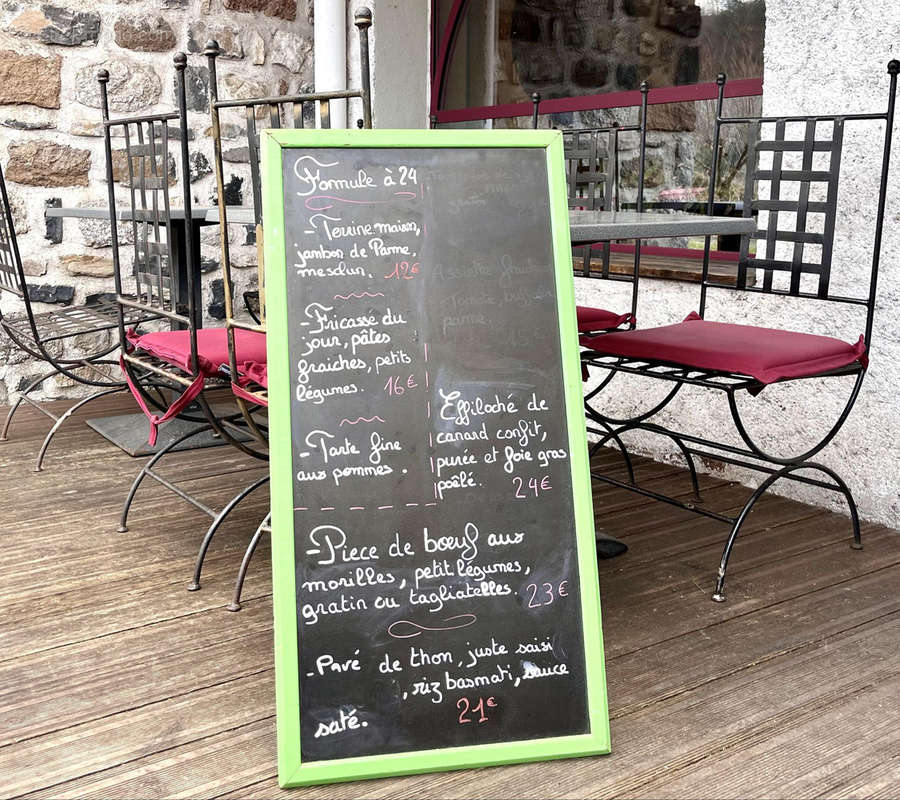 Formule à 24
-Terrine maison,
jambon de Parme,
mesclun. 12€
-Fricassé du
jour, pâtes
fraiches, petits
légumes. 16€
-Tarte fine
aux pommes.
Assiette
Tomate,
parme.
Effiloché de
canard confit,
purée et foie gras
poêlé. 24€
-Piece de bœuf aux
morilles, petit légumes,
gratin ou tagliatelles. 23€
-Pavé de thon, juste saisi
, riz basmati, sauce
saté. 21€